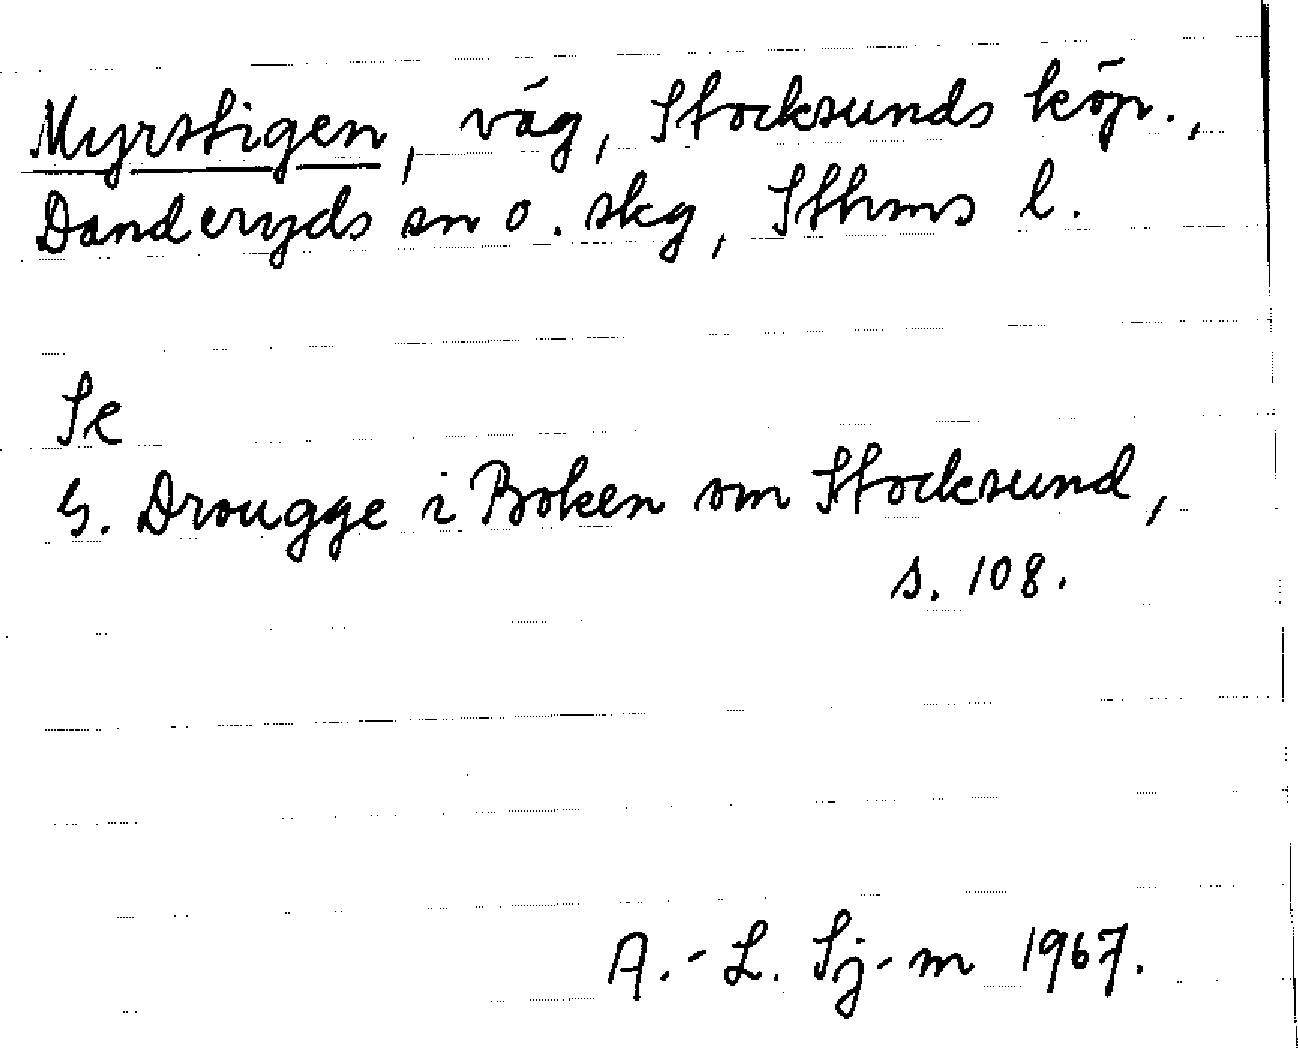 Myrstigen, väg, Stocksunds köp.,
Danderyds sn o. skg, Sthms l.
Se
G. Drougge i Boken om Stocksund,
s. 108.
A.-L. Sj-m 1967.